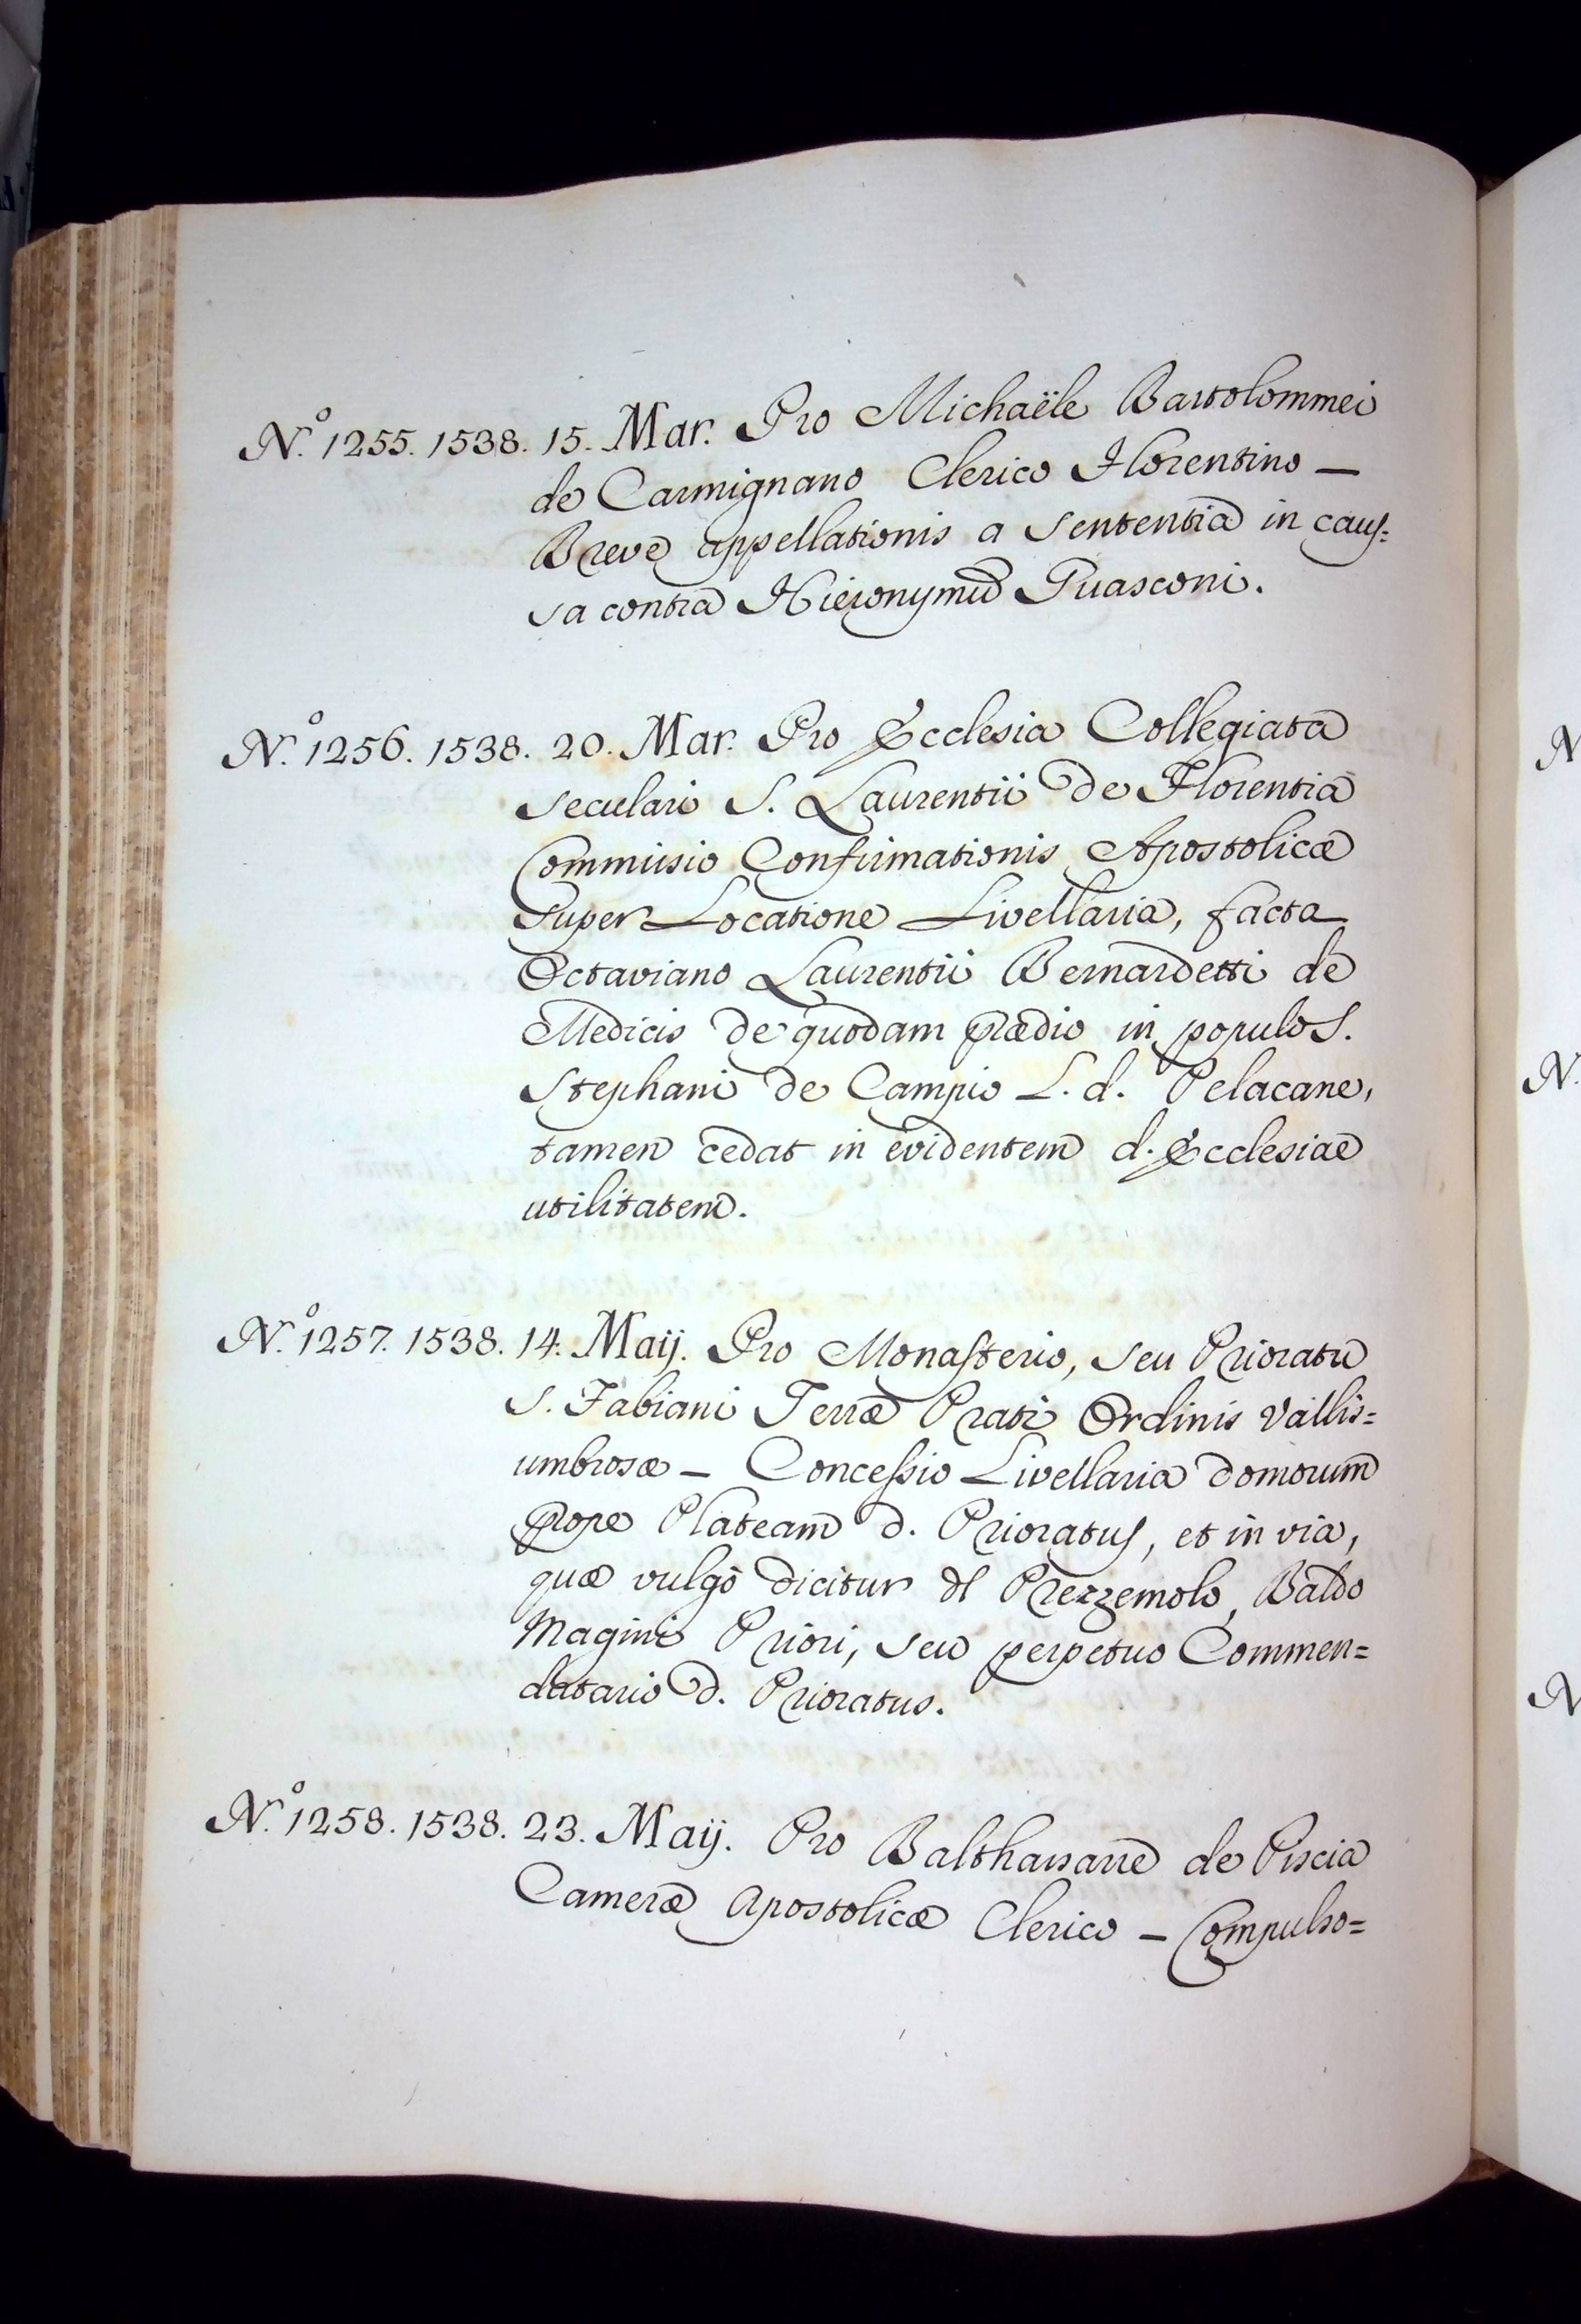 N.º 1255. 1538. 15. Mar. Pro Michaële Bartolommei
de Carmignano Clerico Florentino —
Breve appellationis a sententia in caus=
sa contra Hieronymũ Guasconi.
N.º 1256. 1538. 20. Mar. Pro Ecclesia Collegiata
seculari S. Laurentii de Florentia
Commissio Confirmationis Apostolicæ
super Locatione Livellaria, facta
Octaviano Laurentii Bernardetti de
Medicis de quodam prædio in populo S.
Stephani de Campio L. d. Pelacane,
tamen cedat in evidentem d. Ecclesiae
utilitatem.
N.º 1257. 1538. 14. Maij. Pro Monasterio, seu Prioratu
S. Fabiani Terræ Prati Ordinis Vallis=
umbrosæ — Concessio Livellaria domorum
prope Plateam d. Prioratus, et in via,
quæ vulgò dicitur dl Prezzemolo, Baldo
Magini Priori, seu perpetuo Commen=
datario d. Prioratus.
N.º 1258. 1538. 23. Maij. Pro Balthassarre de Piscia
Cameræ Apostolicæ Clerico — Compulso=
N
N.
N